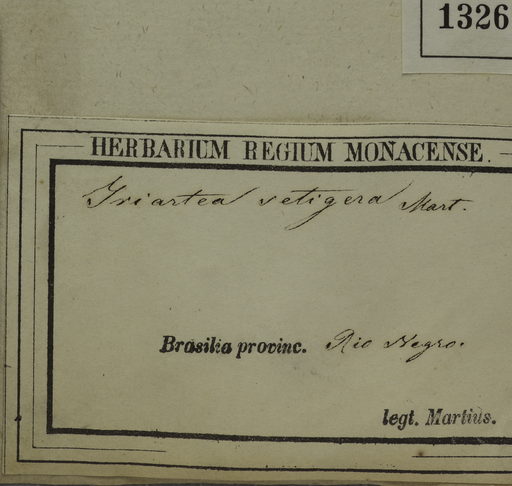 1326
HERBARIUM REGIUM MONACENSE.
Iriartea setigera Mart.
Brasilia provinc. Rio Negro.
legt. Martius.